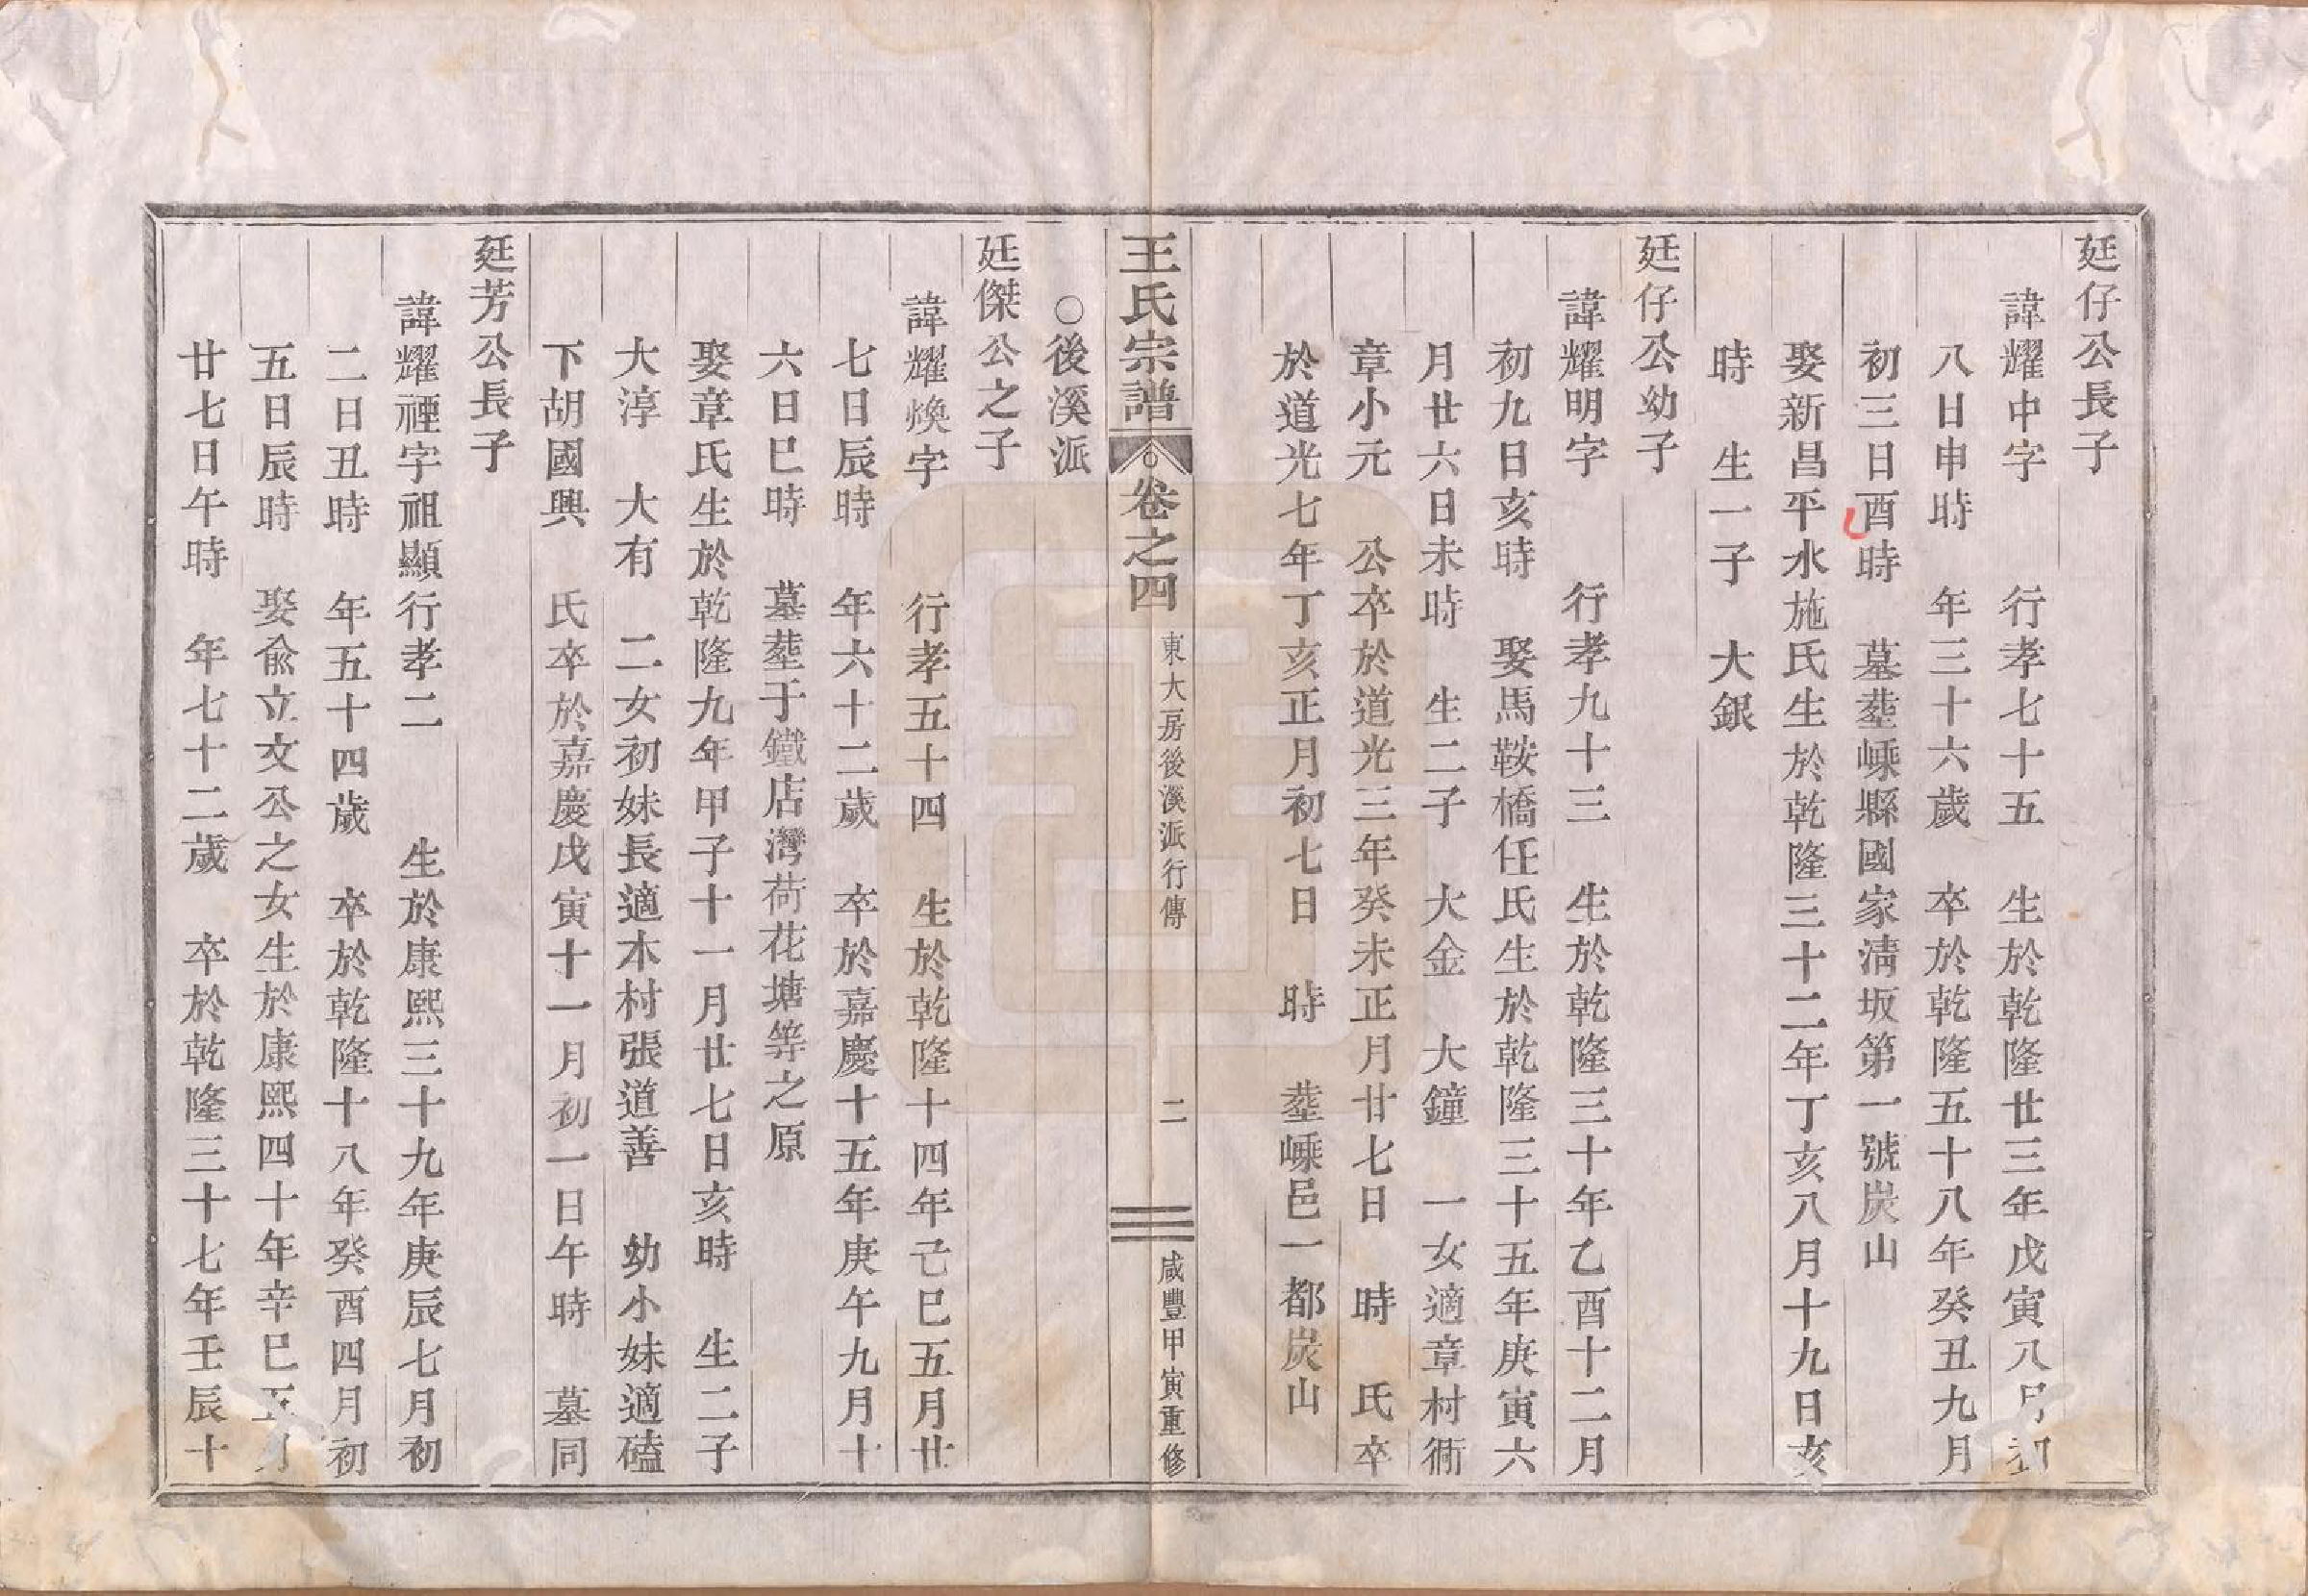 廷仔公長子
諱耀中字　行孝七十五　生於乾隆廿三年戊寅八月初
八日申時　年三十六歲　卒於乾隆五十八年癸丑九月
初三日酉時　墓塟嵊縣國家淸坂第一號炭山
娶新昌平水施氏生於乾隆三十二年丁亥八月十九日亥
時　生一子　大銀
廷仔公幼子
諱耀明字　行孝九十三　生於乾隆三十年乙酉十二月
初九日亥時　娶馬鞍橋任氏生於乾隆三十五年庚寅六
月廿六日未時　生二子　大金　大鐘　一女適章村衕
章小元　公卒於道光三年癸未正月廿七日　時　氏卒
於道光七年丁亥正月初七日　時　塟嵊邑一都炭山
王氏宗譜　卷之四　東大房後溪派行傳　二　咸豐甲寅重修
○後溪派
廷傑公之子
諱耀煥字　行孝五十四　生於乾隆十四年己巳五月廿
七日辰時　年六十二歲　卒於嘉慶十五年庚午九月十
六日巳時　墓塟于鐵店灣荷花塘塋之原
娶章氏生於乾隆九年甲子十一月廿七日亥時　生二子
大淳　大有　二女初妹長適木村張道善　幼小妹適磕
下胡國興　氏卒於嘉慶戊寅十一月初一日午時　墓同
廷芳公長子
諱耀禋字祖顯行孝二　生於康熙三十九年庚辰七月初
二日丑時　年五十四歲　卒於乾隆十八年癸酉四月初
五日辰時　娶俞立文公之女生於康熙四十年辛巳五月
廿七日午時　年七十二歲　卒於乾隆三十七年壬辰十